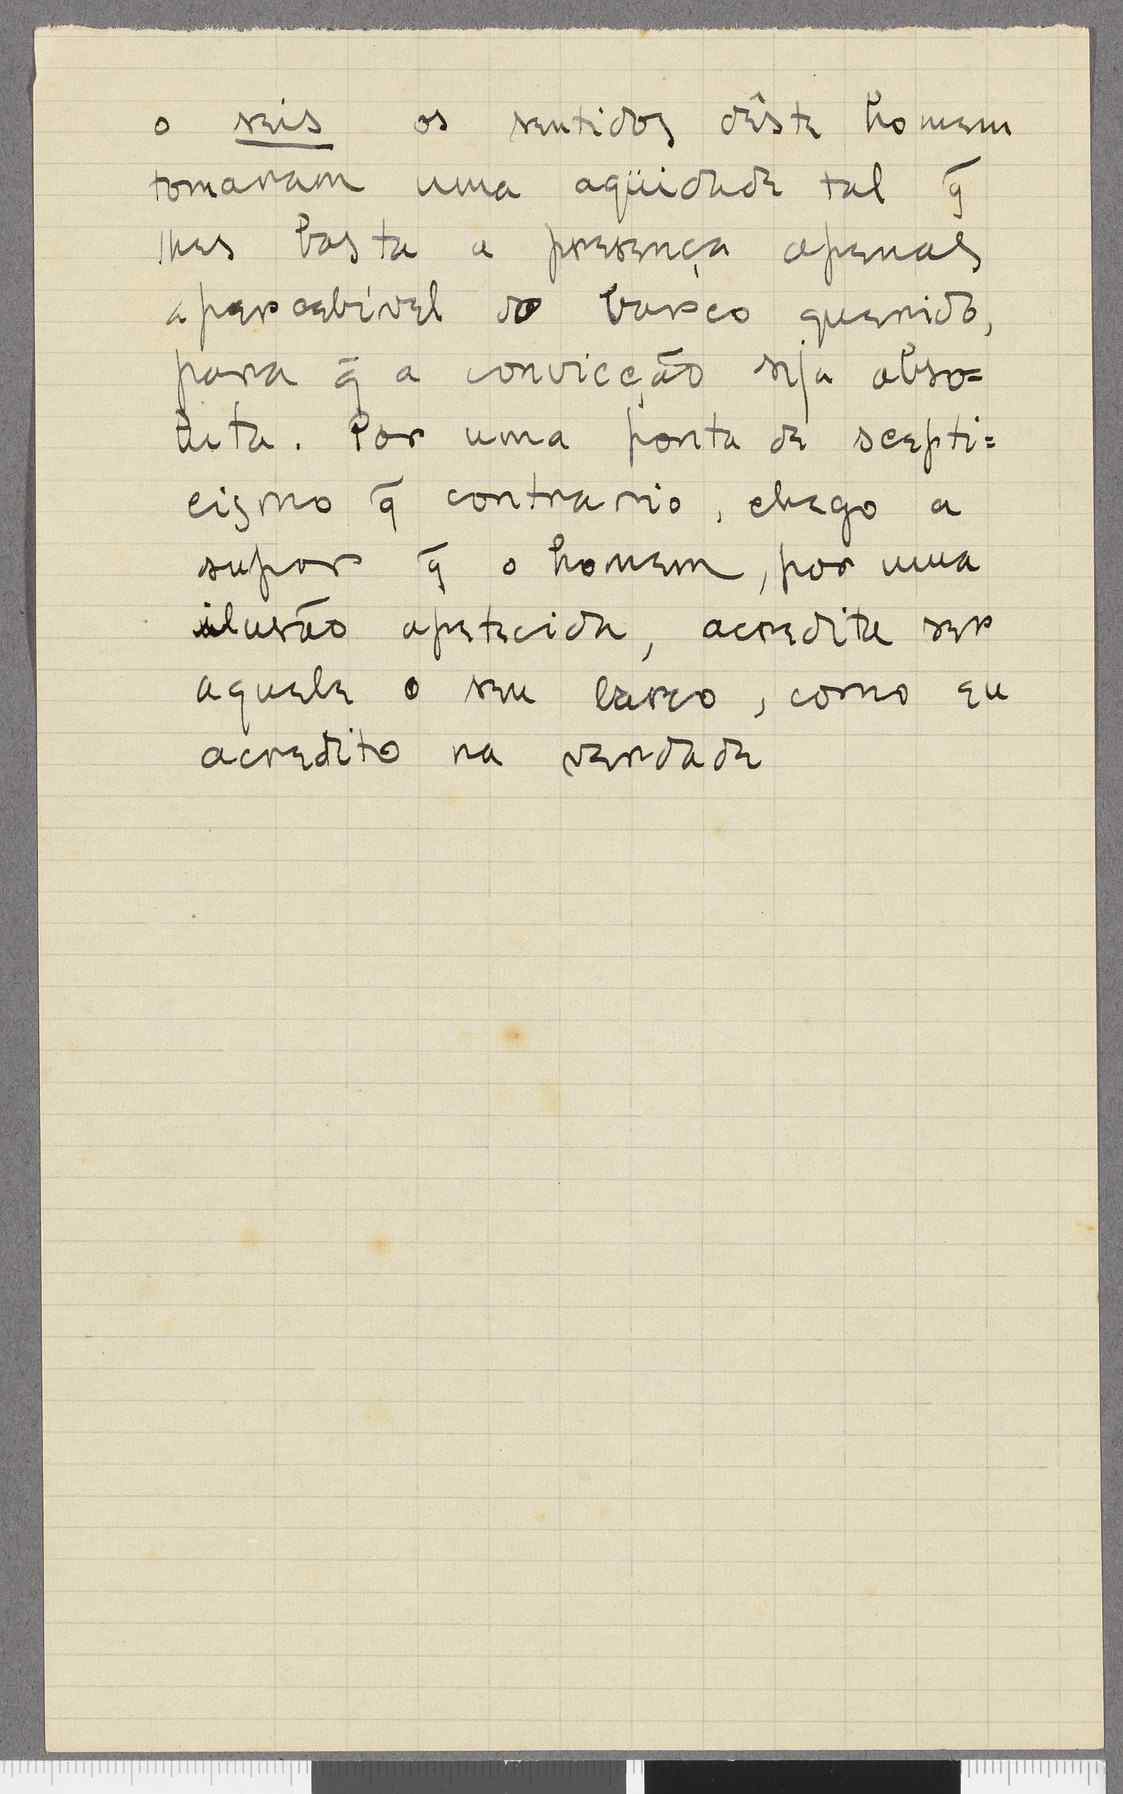 o seis os sentidos dêste homem
tomaram uma agüidade tal q̃
lhes basta a presença apenas
apercebível do barco querido,
para q̃ a convicção seja abso=
luta. Por uma ponta de scepti=
cismo q̃ contrario, chego a
supor q̃ o homem, por uma
ilusão apetecida, acredita ser
aquele o seu barco, como eu
acredito na verdade